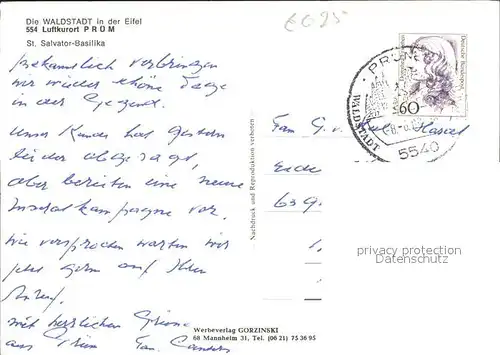 Die WALDSTADT in der Eifel
554 Luftkurort PRÜM
St. Salvator-Basilika
bekanntlich verbringen
wir wieder schöne Tage
in der Gegend.
Unser Kunde hat gestern
leider abgesagt,
aber bereiten eine neue
Inseratkampagne vor.
Wie versprochen warten wir
jetzt gern auf Ihren
Anruf.
Mit herzlichen Grüßen
aus Prüm Fam.
Nachdruck und Reproduktion verboten
Werbeverlag GORZINSKI
68 Mannheim 31, Tel. (06 21) 75 36 95
6025
PRÜM
WALDSTADT
5540
60
Deutsche Bundespost
Fam. G. v.
63
privacy protection
Datenschutz